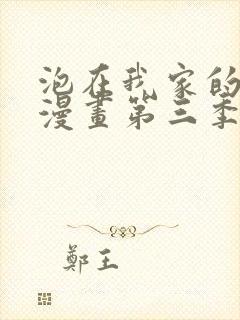 泡在我家的
漫畫第三季
鄭王